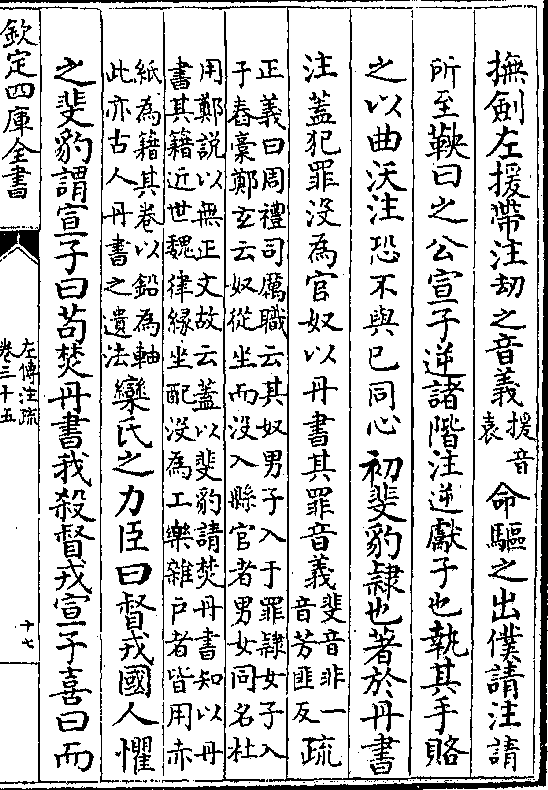 撫劍左援帶注劫之音義援音袁命驅之出僕請注請
所至鞅曰之公宣子逆諸階注逆獻子也執其手賂
之以曲沃注恐不與已同心初斐豹隸也著於丹書
注蓋犯罪沒為官奴以丹書其罪音義斐音非一音芳匪反疏
正義曰周禮司厲職云其奴男子入于罪隸女子入
子舂槀鄭玄云奴從坐而沒入縣官者男女同名杜
用鄭說以無正文故云蓋以斐豹請焚丹書知以丹
書其籍近世魏律緣坐配沒為工樂雜戶者皆用赤
紙為籍其卷以鉛為軸
此亦古人丹書之遺法
欒氏之力臣曰督戎國人懼
之斐豹謂宣子曰茍焚丹書我殺督戎宣子喜曰而
欽定四庫全書
左傳注疏
卷三十五
十七